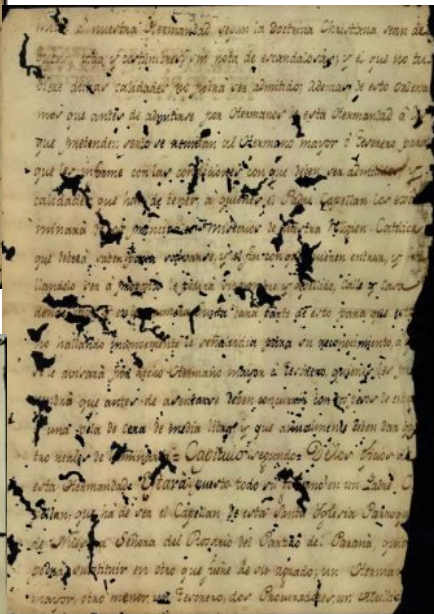 a nuestra Hermandad segun la Doctrina Christiana sean de
vida, y costumbres, sin nota de escandalosas; y el que no tu
biere dichas calidades no podra ser admitido; Ademas de esto ordena
mos que antes de admitirse por Hermanos de esta Hermandad á los
que pretenden; se al Hermano mayor ó Tesorero, para
que les informe con las condiciones con que deben ser admitidos y
calidades que han de tener, a quienes el Padre Capellan los exa
minará de los principales Misterios de nuestra Religion Catolica
que deberá saber para salvarse, y el fin con que quieren entrar, y
llandolo ser á proposito le pedirá su nombre y apellido, Calle y Casa
donde y en la primera Junta dará parte de esto para que
no hallando inconveniente le señalen dia para su reconocimiento, á
se le avisará por dicho Hermano mayor ó Tesorero, quienes les
que antes de asentarse deben concurrir con de
una vela de cera de media libra, y que anualmente deben dar
tro reales de Luminaria = Capitulo segundo = De los Oficios de
esta Hermandad = Estará puesto todo su govierno en un Padre
llan, que há de ser el Capellan de esta Santa Iglesia Parroq
de Nuestra Señora del Rosario del Partido del Paraná, quien
podrá substituir en otro que fuere de su agrado; un Herman
mayor, otro menor, un Tesorero, dos Procuradores, un